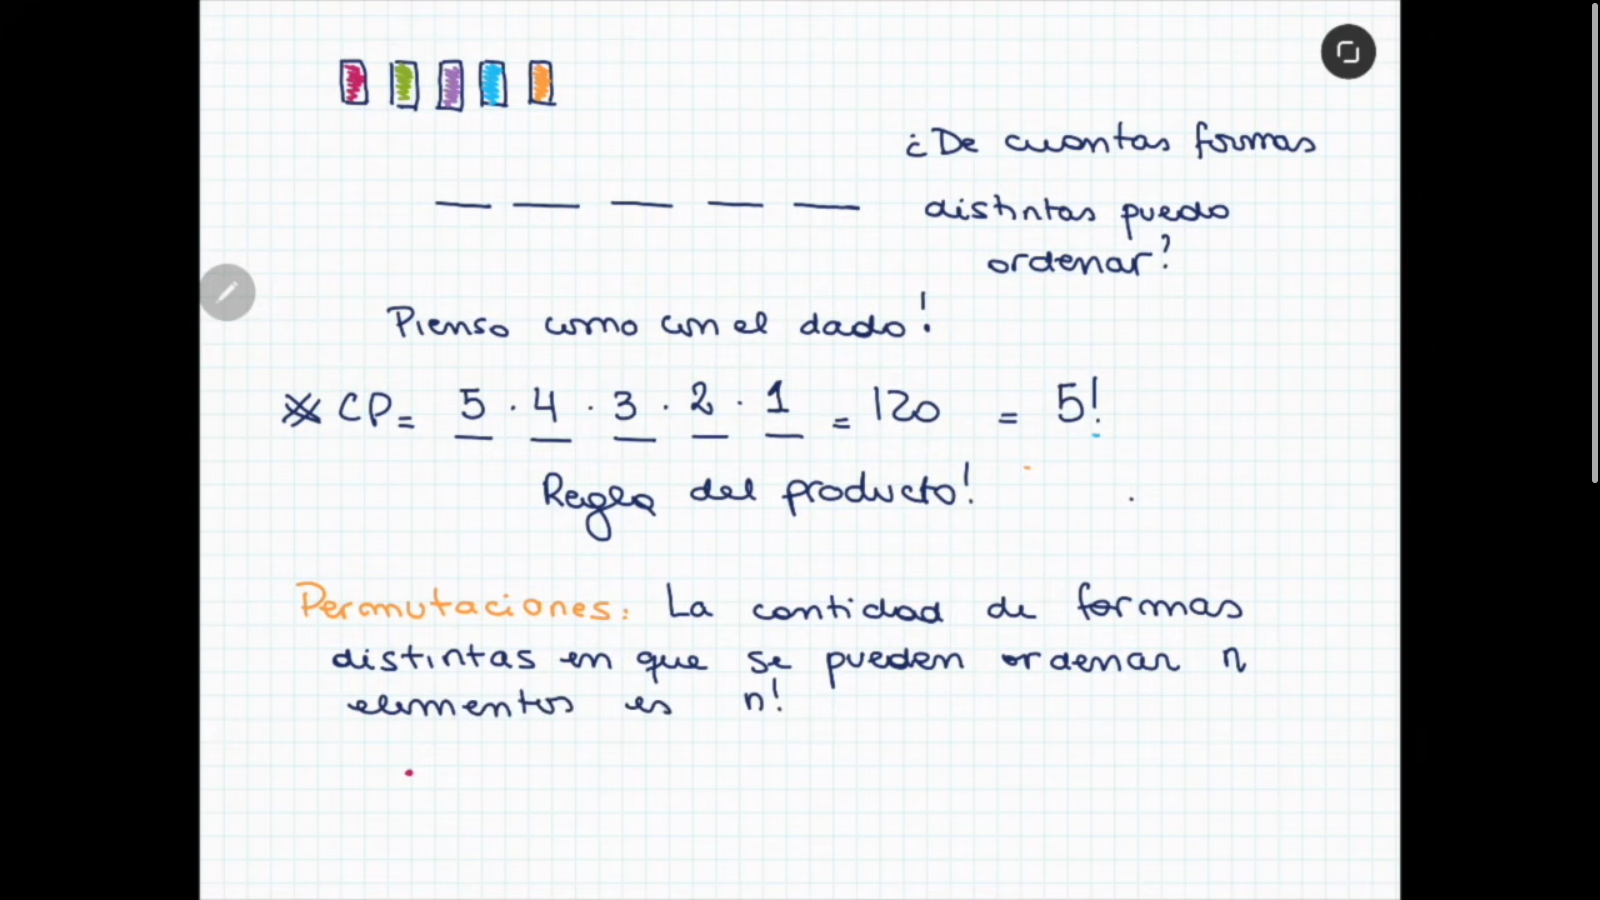 ¿De cuantas formas
distintas puedo
ordenar?
Pienso como con el dado!
* CP = 5 · 4 · 3 · 2 · 1 = 120 = 5!
Regla del producto!
Permutaciones: La cantidad de formas
distintas en que se pueden ordenar n
elementos es n!